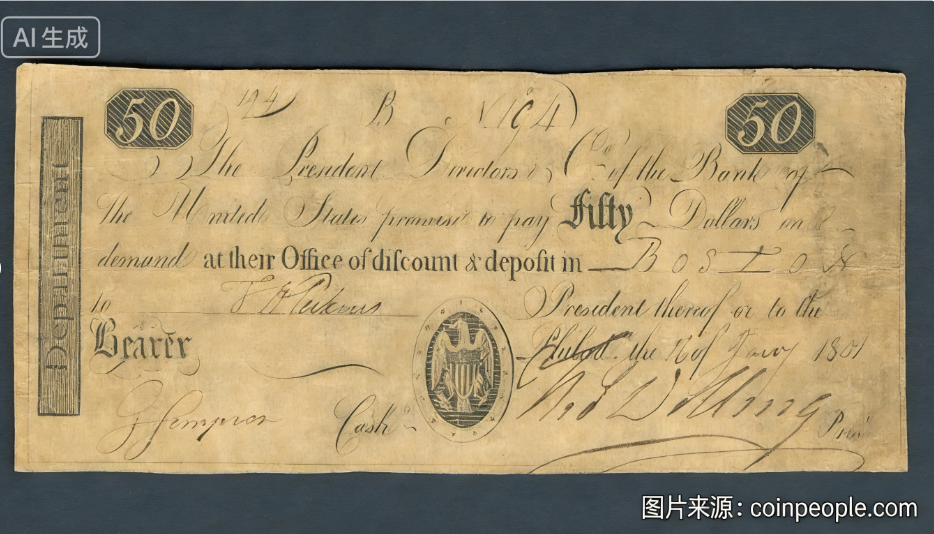 AI生成
50
50
194
B
No 194
The President Directors & Co. of the Bank of
the United States promise to pay Fifty Dollars on
demand at their Office of discount & deposit in Boston
to
President thereof or to the
Bearer
the of Jany 1801
Cash
Department
图片来源：coinpeople.com